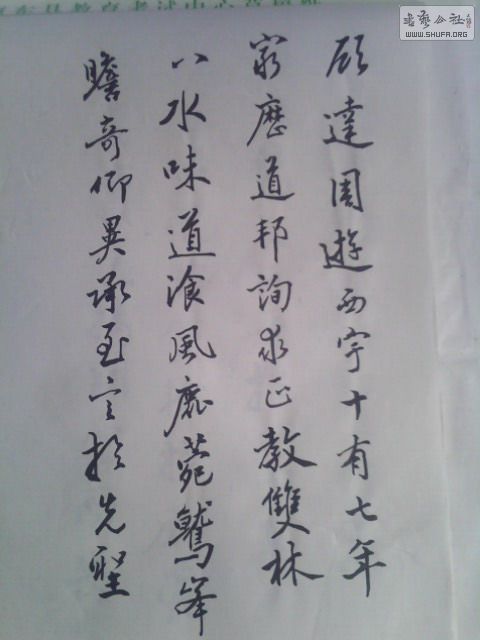 願達周遊西宇十有七年
窮歷道邦詢求正教雙林
八水味道湌風鹿菀鷲峯
瞻奇仰異承至言於先聖
書藝公社
WWW.SHUFA.ORG